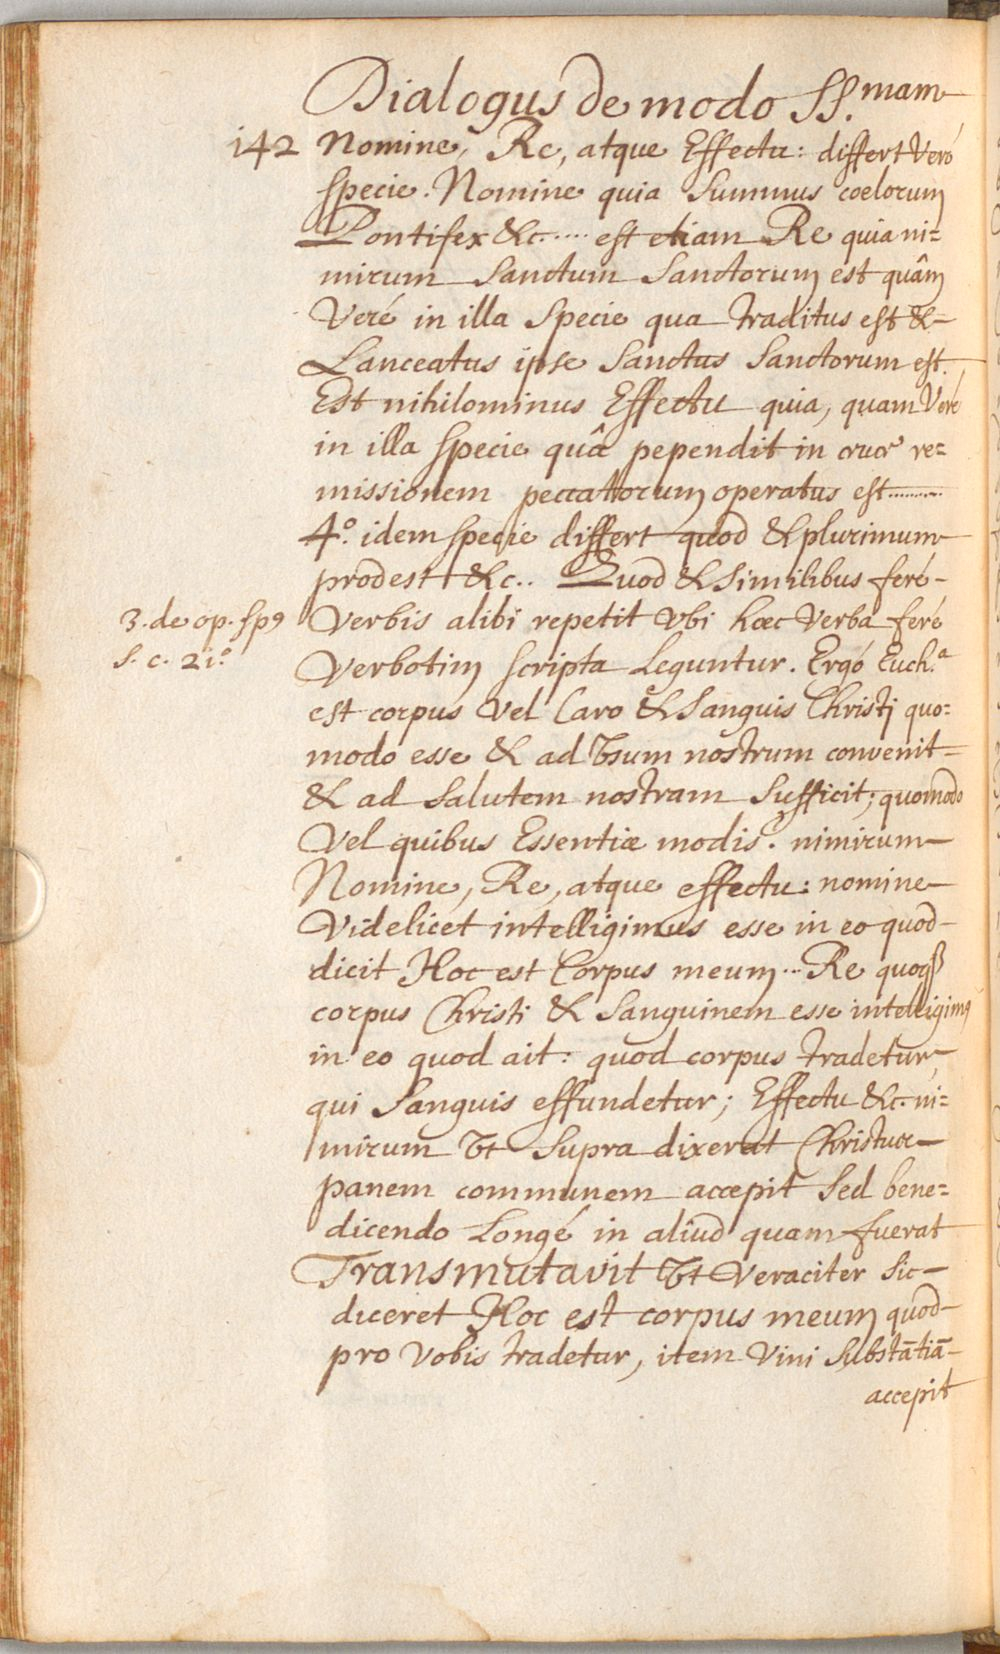 Dialogus de modo SS.mam
142 Nomine, Re, atque Effectu: differt Veró
specie. Nomine quia Summus coelorum
Pontifex &c..... est etiam Re quia ni=
mirum Sanctum Sanctorum est quâm
Veré in illa Specie qua traditus est &
Lanceatus ipse Sanctus Sanctorum est.
Est nihilominus Effectu quia, quam Veré
in illa specie quâ pependit in cruce re=
missionem peccatorum operatus est..........
4.º idem specie differt quod & plurimum
prodest &c.. Quod & Similibus feré
3. de op. sp9 Verbis alibi repetit Vbi hœc Verba feré
S. c. 21.º Verbotim scripta Leguntur. Ergó Euch.a
est corpus Vel Caro & Sanguis Christi quo=
modo esse & ad Vsum nostrum convenit
& ad Salutem nostram Sufficit; quomodo
Vel quibus Essentiæ modis. nimirum
Nomine, Re, atque effectu: nomine
Videlicet intelligimus esse in eo quod
dicit Hoc est Corpus meum... Re quoqß
corpus Christi & Sanguinem esse intelligim9
in eo quod ait: quod corpus tradetur,
qui Sanguis effundetur; Effectu &c. ni=
mirum Vt Supra dixerat Christus
panem communem accepit Sed bene=
dicendo Longé in aliud quam fuerat
Transmutavit Vt Veraciter Sic
diceret Hoc est corpus meum quod
pro Vobis tradetur, item Vini Substātiā
accepit